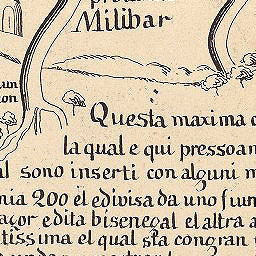 Milibar
un
ion
Questa maxima
la qual e qui pressoan
al sono inserti con alguni m
nia 200 el edivisa da uno fium
açor edita bisenegal el altra a
tissima el qual sta congran